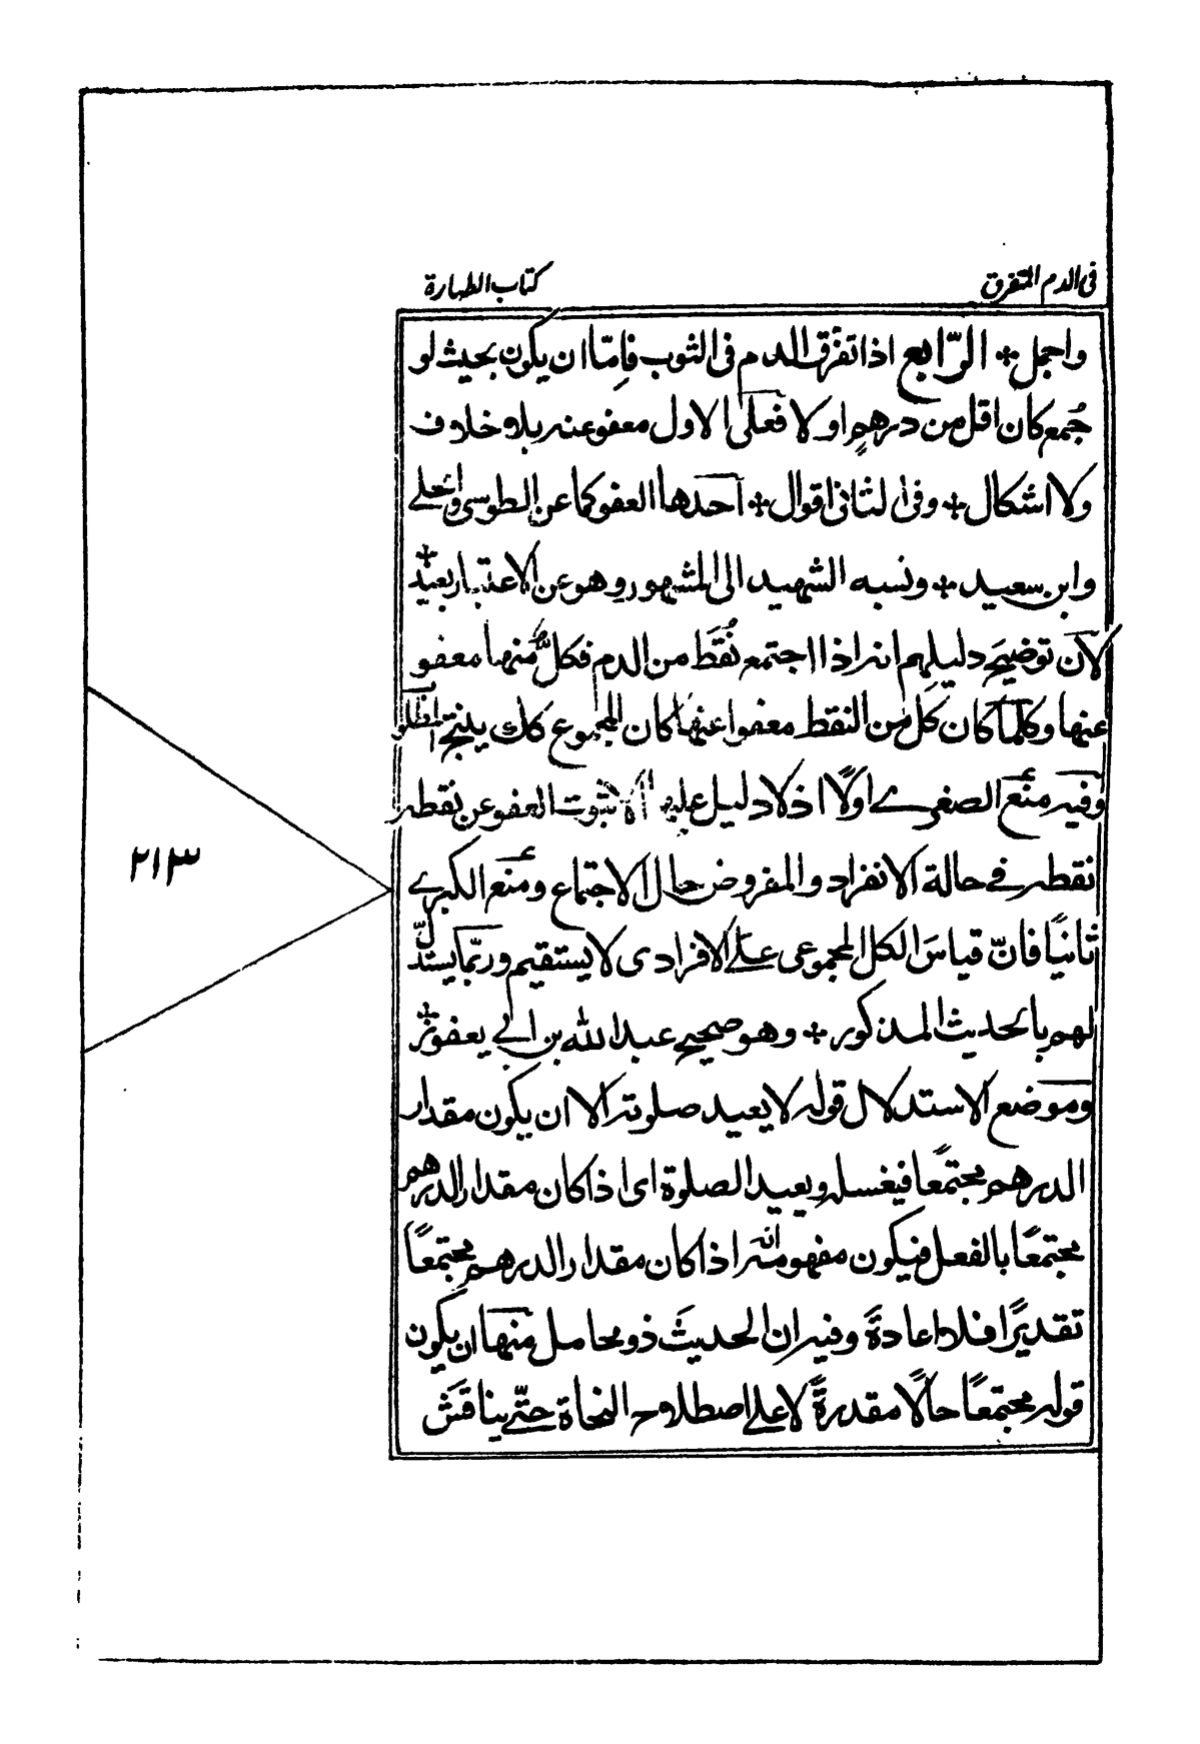 فى الدم المتفرق
كتاب الطهارة
واجمل + الرّابع اذا تفرّق الدم فى الثوب فامّا ان يكون بحيث لو
جُمع كان اقل من درهمٍ او لا فعلى الاول معفو عنه بلا خلاف
ولا اشكال + وفى الثانى اقوال + احدها العفو كما عن الطوسى والحلے
وابن سعيد + ونسبه الشهيد الى المشهور وهو عن الاعتبار بعيد +
لان توضيح دليلهم انه اذا اجتمع نُقَط من الدم فكلٌّ منها معفو
عنها وكلما كان كل من النقط معفوا عنها كان المجموع كك ينتج
وفيه منع الصغرے اولًا اذ لا دليل عليه الا ثبوت العفو عن نقطه
نقطه فے حالة الانفراد والمفروض حال الاجتماع ومنع الكبرے
ثانيًا فانّ قياسَ الكل المجموعى علے الافرادى لا يستقيم وربّما يستدلّ
لهم بالحديث المذكور + وهو صحيح عبد الله بن ابى يعفور +
وموضع الاستدلال قوله لا يعيد صلوته الا ان يكون مقدار
الدرهم مجتمعًا فيغسله ويعيد الصلوة اى اذا كان مقدار الدرهم
مجتمعًا بالفعل فيكون مفهومه انّه اذا كان مقدار الدرهم مجتمعًا
تقديرًا فلا اعادةَ وفيه ان الحديثَ ذو محامل منها ان يكون
قوله مجتمعًا حالًا مقدرةً لا علے اصطلاح النحاة حتّے يناقَش
٢١٣